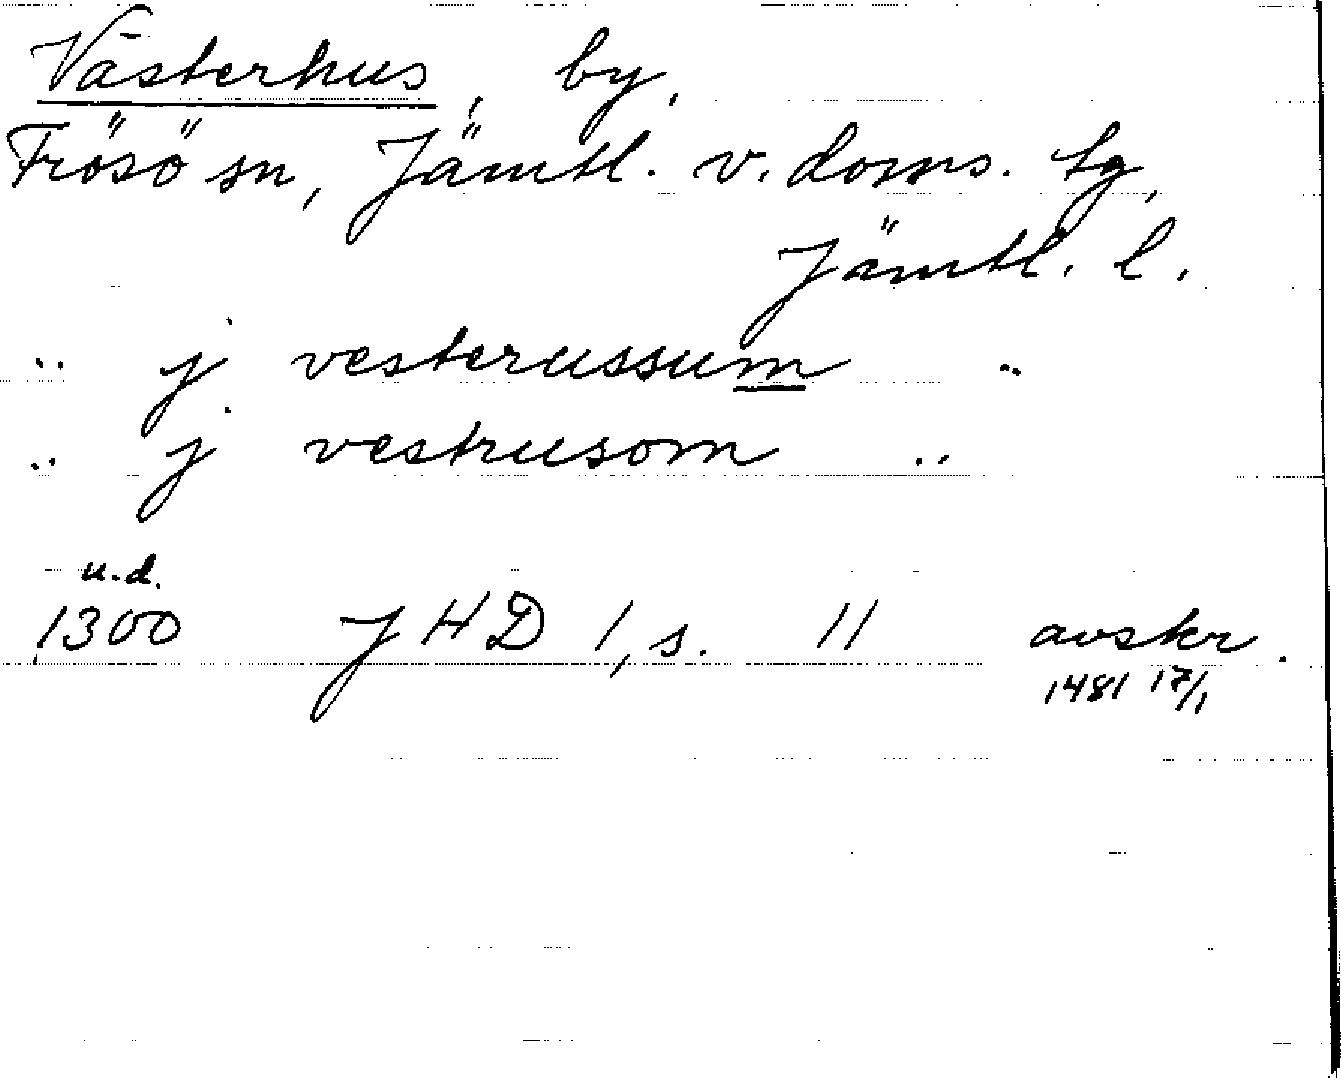 Västerhus, by,
Frösö sn, Jämtl. v. doms. tg,
Jämtl. l.
.. j vesterussum ..
.. j vestrusom ..
u.d.
1300 JHD 1, s. 11 avskr.
1481 17/1